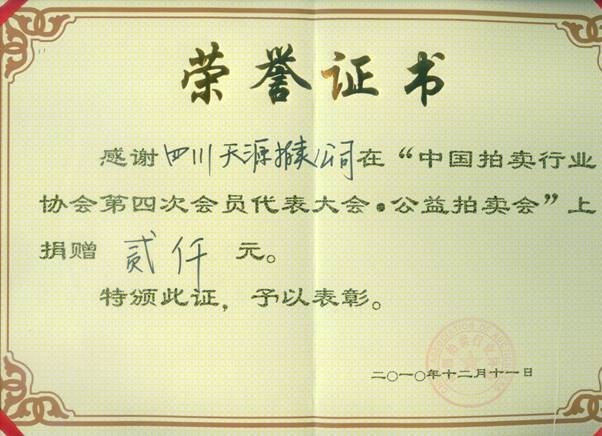 荣誉证书
感谢四川天源拍卖公司在“中国拍卖行业
协会第四次会员代表大会·公益拍卖会”上
捐赠 贰仟 元。
特颁此证，予以表彰。
二○一○年十二月十一日